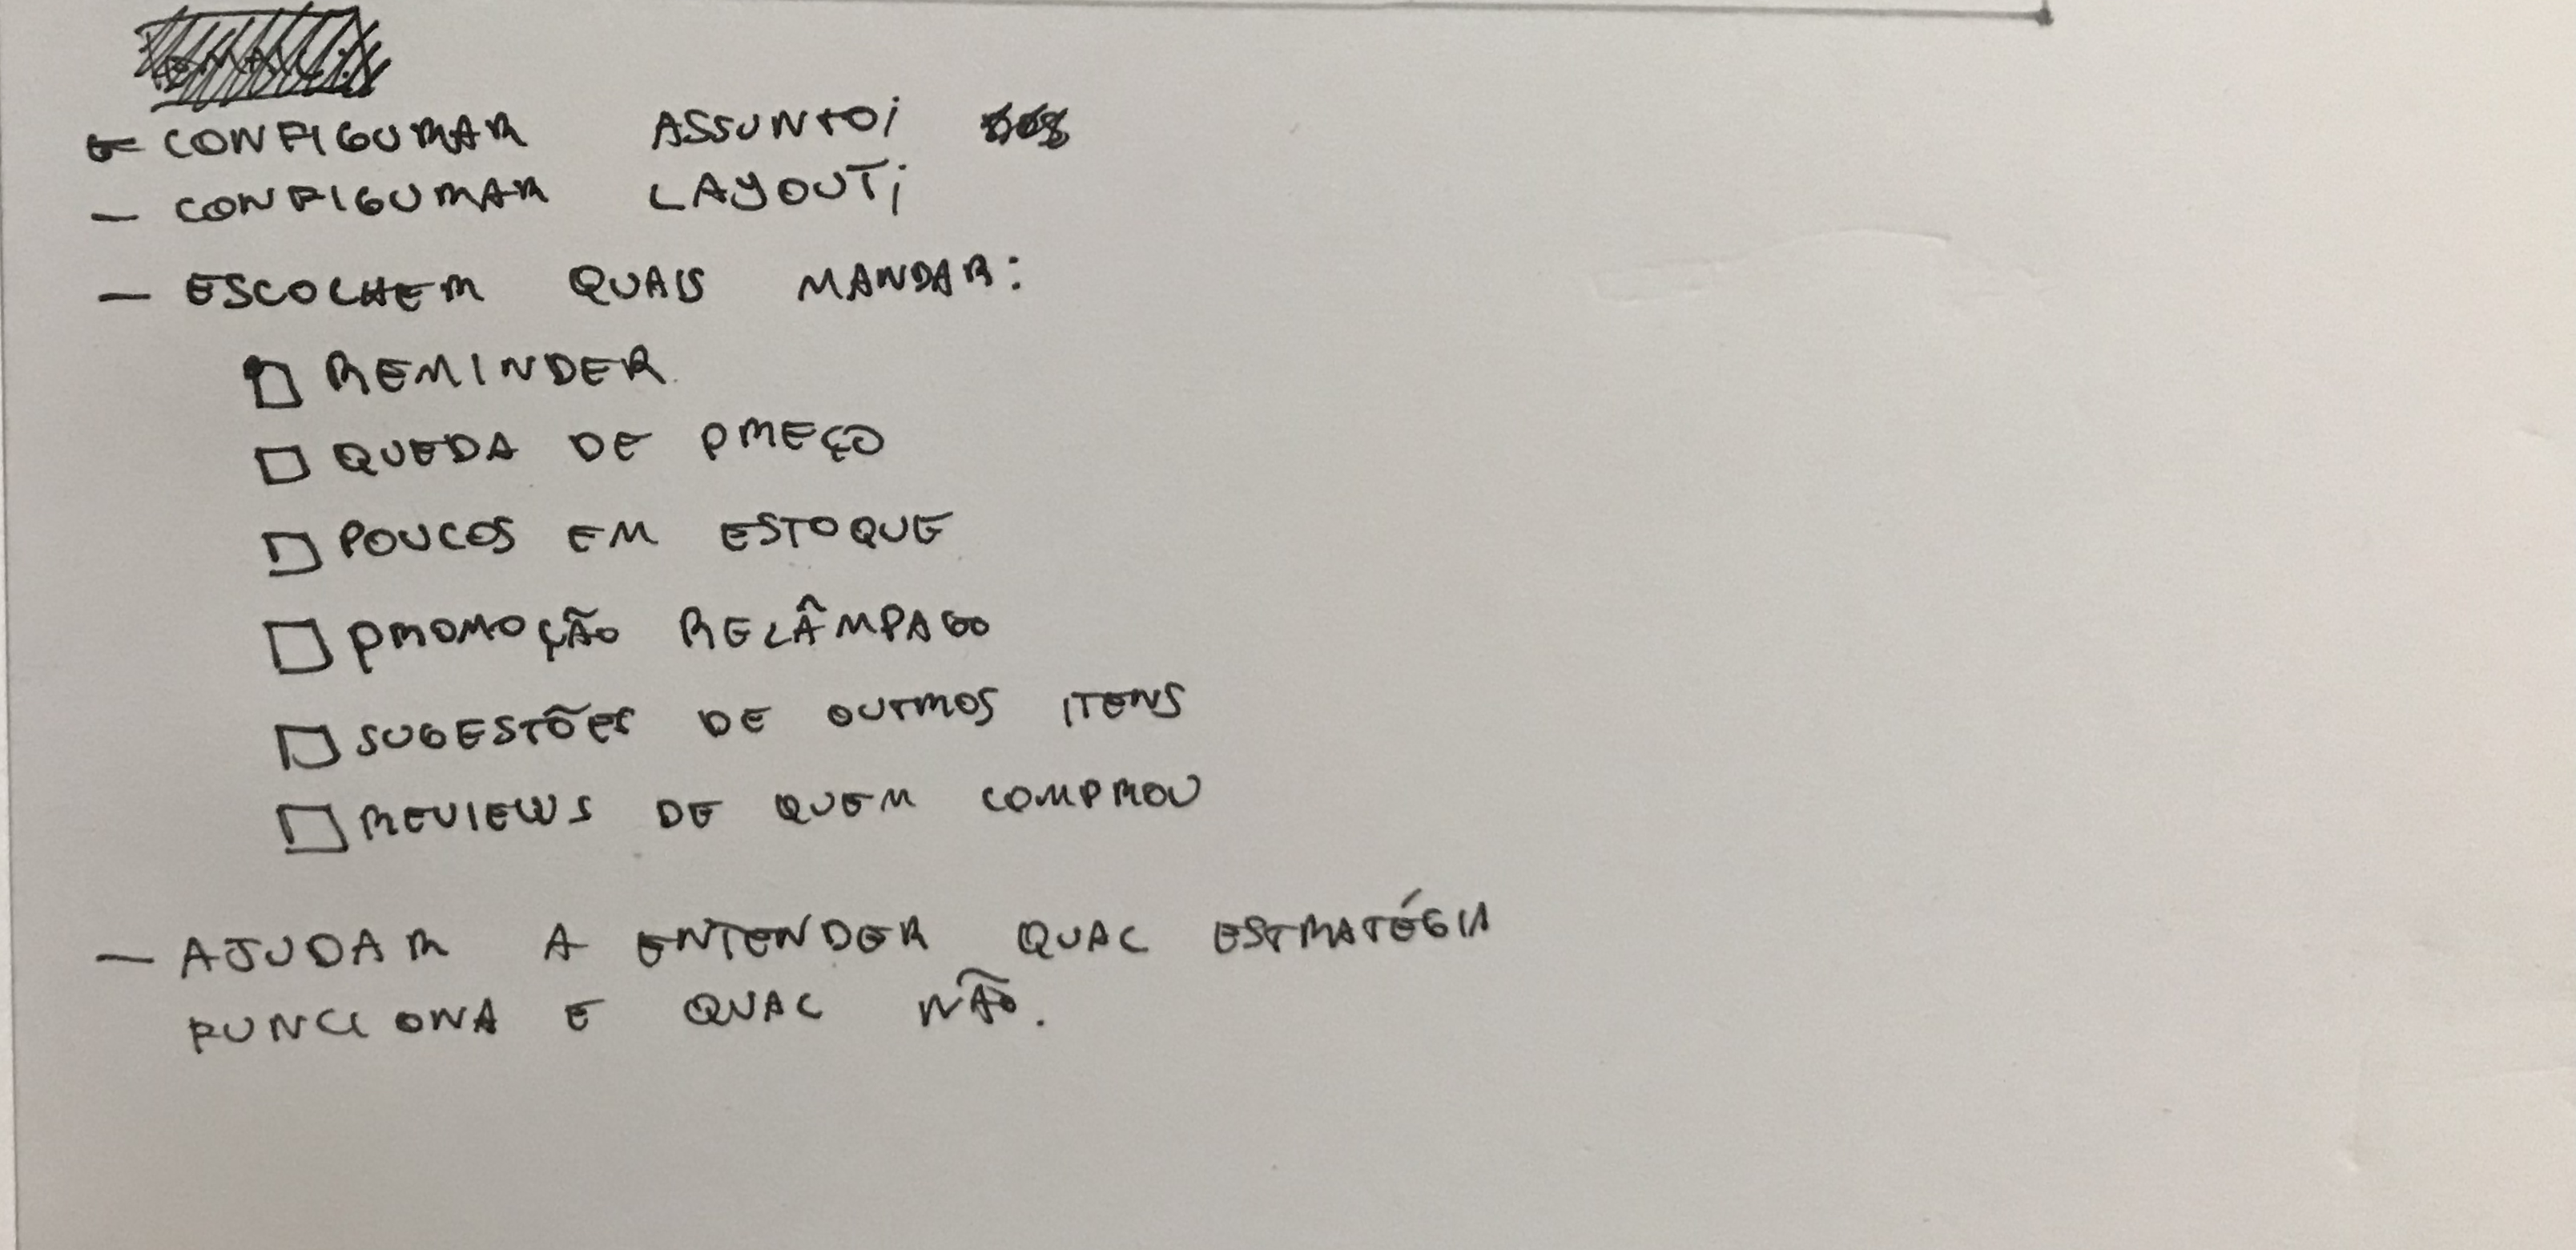 - CONFIGURAR ASSUNTO;
- CONFIGURAR LAYOUT;
- ESCOLHER QUAIS MANDAR:
☐ REMINDER.
☐ QUEDA DE PREÇO
☐ POUCOS EM ESTOQUE
☐ PROMOÇÃO RELÂMPAGO
☐ SUGESTÕES DE OUTROS ITENS
☐ REVIEWS DE QUEM COMPROU
- AJUDAR A ENTENDER QUAL ESTRATÉGIA
FUNCIONA E QUAL NÃO.